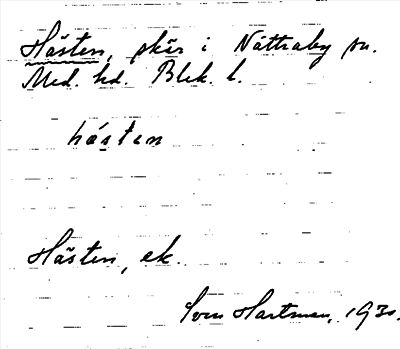 Hästen, skär i Nättraby sn.
Med. hd. Blek. l.
hástan
Hästen, ek.
Sven Hartman, 1930.